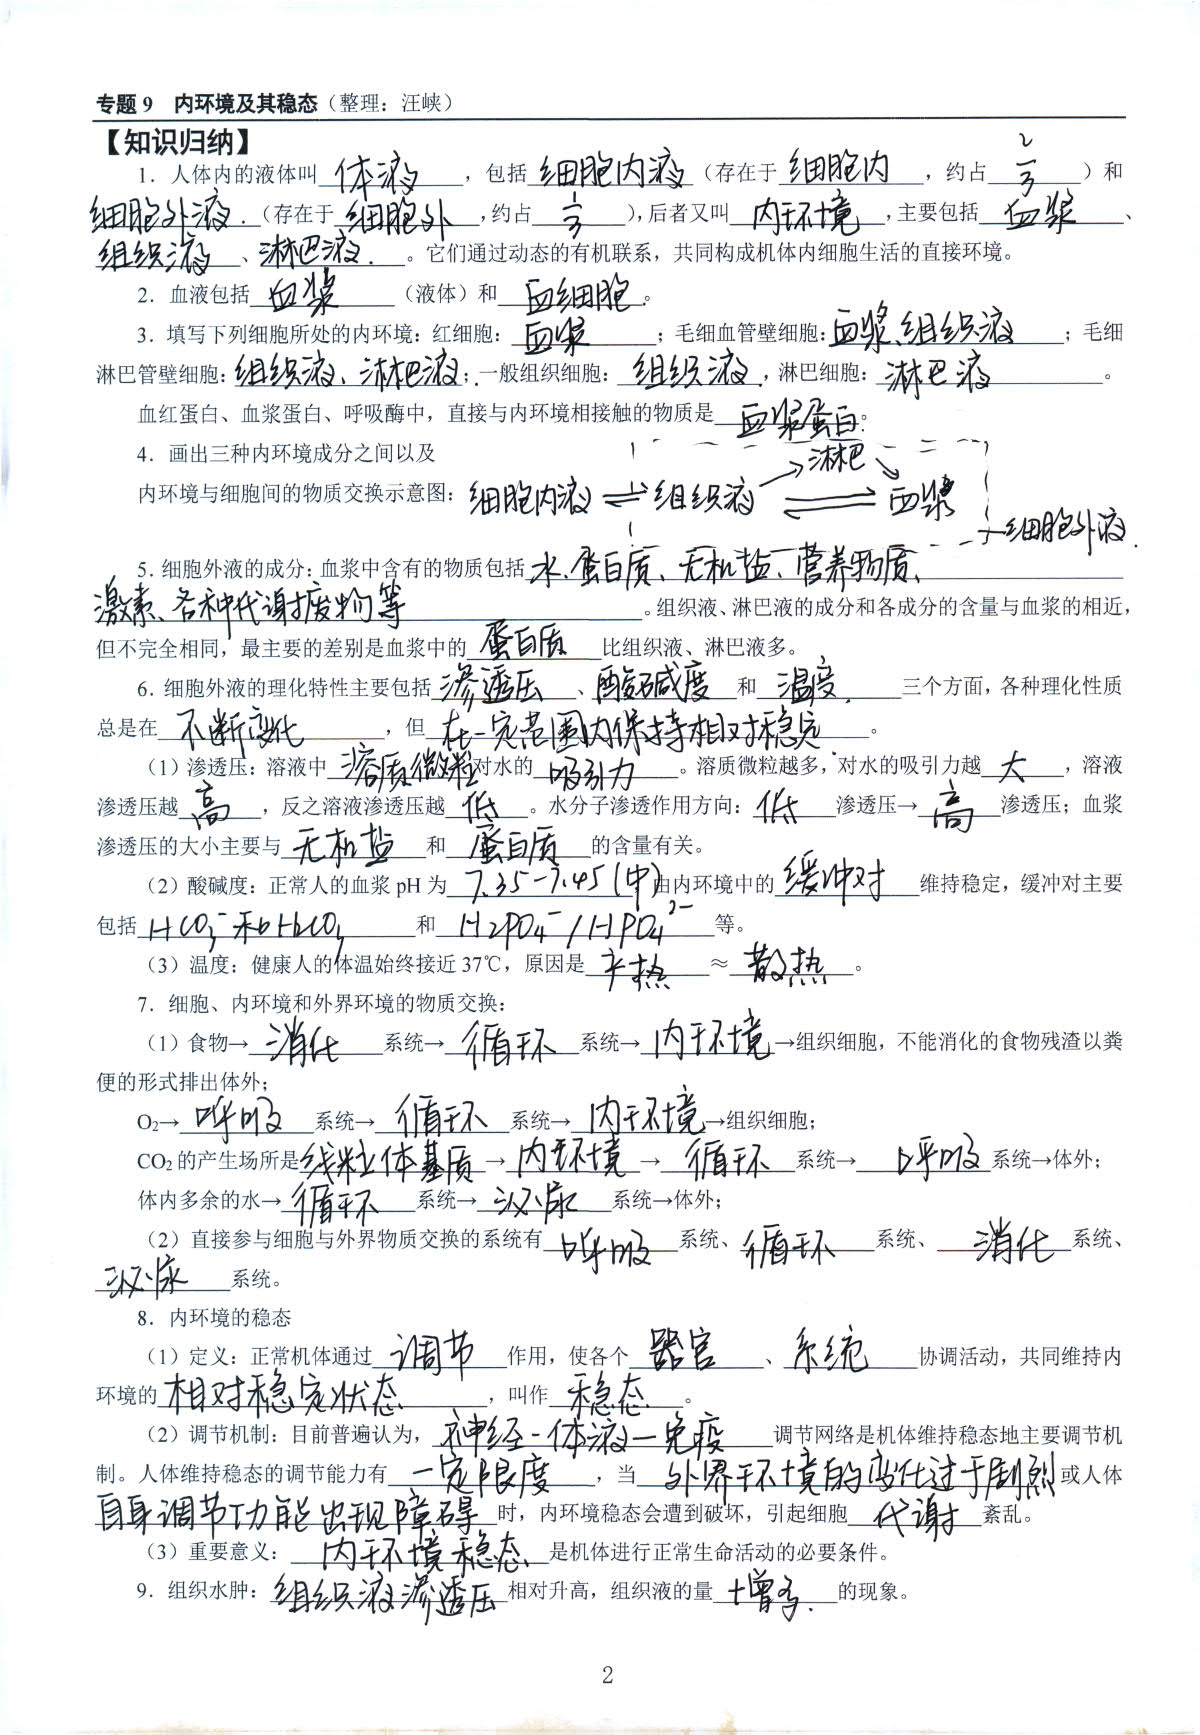 专题 9　内环境及其稳态（整理：汪峡）
【知识归纳】
1．人体内的液体叫 体液 ，包括 细胞内液 （存在于 细胞内 ，约占 2/3 ）和
细胞外液.（存在于 细胞外 ，约占 1/3 ），后者又叫 内环境 ，主要包括 血浆 、
组织液 、淋巴液. 。它们通过动态的有机联系，共同构成机体内细胞生活的直接环境。
2．血液包括 血浆 （液体）和 血细胞 。
3．填写下列细胞所处的内环境：红细胞： 血浆 ；毛细血管壁细胞：血浆、组织液 ；毛细
淋巴管壁细胞：组织液、淋巴液；一般组织细胞： 组织液 ，淋巴细胞：淋巴液 。
血红蛋白、血浆蛋白、呼吸酶中，直接与内环境相接触的物质是 血浆蛋白。
4．画出三种内环境成分之间以及
淋巴
内环境与细胞间的物质交换示意图：细胞内液 ⇌ 组织液 ⇌ 血浆
细胞外液.
5．细胞外液的成分：血浆中含有的物质包括 水、蛋白质、无机盐、营养物质、
激素、各种代谢废物等 。组织液、淋巴液的成分和各成分的含量与血浆的相近，
但不完全相同，最主要的差别是血浆中的 蛋白质 比组织液、淋巴液多。
6．细胞外液的理化特性主要包括 渗透压 、酸碱度 和 温度. 三个方面，各种理化性质
总是在 不断变化 ，但 在一定范围内保持相对稳定. 。
（1）渗透压：溶液中 溶质微粒 对水的 吸引力 。溶质微粒越多，对水的吸引力越 大 ，溶液
渗透压越 高 ，反之溶液渗透压越 低 。水分子渗透作用方向： 低 渗透压→ 高 渗透压；血浆
渗透压的大小主要与 无机盐 和 蛋白质 的含量有关。
（2）酸碱度：正常人的血浆 pH 为 7.35-7.45（中）由内环境中的 缓冲对 维持稳定，缓冲对主要
包括 HCO₃⁻和H₂CO₃ 和 H₂PO₄⁻/HPO₄²⁻ 等。
（3）温度：健康人的体温始终接近 37℃，原因是 产热 ≈ 散热 。
7．细胞、内环境和外界环境的物质交换：
（1）食物→ 消化 系统→ 循环 系统→ 内环境 →组织细胞，不能消化的食物残渣以粪
便的形式排出体外；
O₂→ 呼吸 系统→ 循环 系统→ 内环境 →组织细胞；
CO₂ 的产生场所是线粒体基质 → 内环境 → 循环 系统→ 呼吸 系统→体外；
体内多余的水→ 循环 系统→ 泌尿 系统→体外；
（2）直接参与细胞与外界物质交换的系统有 呼吸 系统、循环 系统、 消化 系统、
泌尿 系统。
8．内环境的稳态
（1）定义：正常机体通过 调节 作用，使各个 器官 、系统 协调活动，共同维持内
环境的 相对稳定状态 ，叫作 稳态 。
（2）调节机制：目前普遍认为， 神经-体液-免疫 调节网络是机体维持稳态地主要调节机
制。人体维持稳态的调节能力有 一定限度 ，当 外界环境的变化过于剧烈 或人体
自身调节功能出现障碍 时，内环境稳态会遭到破坏，引起细胞 代谢 紊乱。
（3）重要意义： 内环境稳态 是机体进行正常生命活动的必要条件。
9．组织水肿：组织液渗透压 相对升高，组织液的量 增多. 的现象。
2